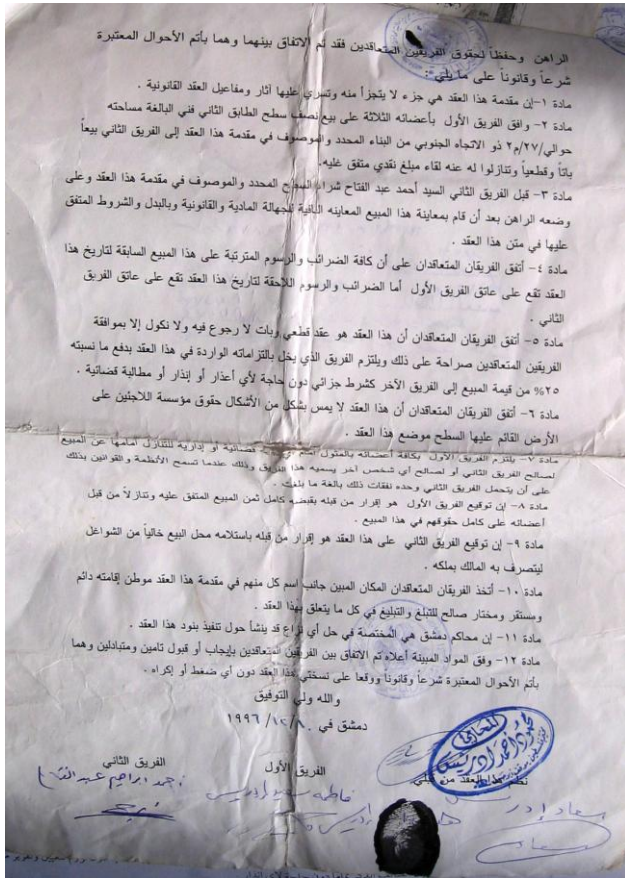 الراهن وحفظاً لحقوق الفريقين المتعاقدين فقد تم الاتفاق بينهما وهما بأتم الأحوال المعتبرة
شرعاً وقانوناً على ما يلي :
مادة ١- إن مقدمة هذا العقد هي جزء لا يتجزأ منه وتسري عليها آثار ومفاعيل العقد القانونية .
مادة ٢- وافق الفريق الأول بأعضائه الثلاثة على بيع نصف سطح الطابق الثاني فني البالغة مساحته
حوالي /٢٧/م٢ ذو الاتجاه الجنوبي من البناء المحدد والموصوف في مقدمة هذا العقد إلى الفريق الثاني بيعاً
باتاً وقطعياً وتنازلوا له عنه لقاء مبلغ نقدي متفق عليه.
مادة ٣- قبل الفريق الثاني السيد أحمد عبد الفتاح شراء السطح المحدد والموصوف في مقدمة هذا العقد وعلى
وضعه الراهن بعد أن قام بمعاينة هذا المبيع المعاينه النافية للجهالة المادية والقانونية وبالبدل والشروط المتفق
عليها في متن هذا العقد .
مادة ٤- أتفق الفريقان المتعاقدان على أن كافة الضرائب والرسوم المترتبة على هذا المبيع السابقة لتاريخ هذا
العقد تقع على عاتق الفريق الأول أما الضرائب والرسوم اللاحقة لتاريخ هذا العقد تقع على عاتق الفريق
الثاني .
مادة ٥- أتفق الفريقان المتعاقدان أن هذا العقد هو عقد قطعي وبات لا رجوع فيه ولا نكول إلا بموافقة
الفريقين المتعاقدين صراحة على ذلك ويلتزم الفريق الذي يخل بالتزاماته الواردة في هذا العقد بدفع ما نسبته
٢٥% من قيمة المبيع إلى الفريق الآخر كشرط جزائي دون حاجة لأي أعذار أو إنذار أو مطالبة قضائية .
مادة ٦- أتفق الفريقان المتعاقدان أن هذا العقد لا يمس بشكل من الأشكال حقوق مؤسسة اللاجئين على
الأرض القائم عليها السطح موضع هذا العقد .
مادة ٧- يلتزم الفريق الأول بكافة أعضائه بالمثول أمام قضائية أو إدارية للتنازل أمامها عن المبيع
لصالح الفريق الثاني أو لصالح أي شخص آخر يسميه هذا الفريق وذلك عندما تسمح الأنظمة والقوانين بذلك
على أن يتحمل الفريق الثاني وحده نفقات ذلك بالغة ما بلغت .
مادة ٨- إن توقيع الفريق الأول هو إقرار من قبله بقبضه كامل ثمن المبيع المتفق عليه وتنازلاً من قبل
أعضائه على كامل حقوقهم في هذا المبيع .
مادة ٩- إن توقيع الفريق الثاني على هذا العقد هو إقرار من قبله باستلامه محل البيع خالياً من الشواغل
ليتصرف به المالك بملكه .
مادة ١٠- أتخذ الفريقان المتعاقدان المكان المبين جانب اسم كل منهم في مقدمة هذا العقد موطن إقامته دائم
ومستقر ومختار صالح للتبلغ والتبليغ في كل ما يتعلق بهذا العقد .
مادة ١١- إن محاكم دمشق هي المختصة في حل أي نزاع قد ينشأ حول تنفيذ بنود هذا العقد .
مادة ١٢- وفق المواد المبينة أعلاه تم الاتفاق بين الفريقين المتعاقدين بإيجاب أو قبول تامين ومتبادلين وهما
بأتم الأحوال المعتبرة شرعاً وقانوناً ووقعا على نسختي هذا العقد دون أي ضغط أو إكراه .
والله ولي التوفيق
دمشق في ٨/١٢/١٩٩٦
المحامي
محمود أحمد ادريس
نظم هذا العقد من قبلي
الفريق الأول
الفريق الثاني
أحمد ابراهيم عبد الفتاح
فاطمة ادريس
سعاد إدر
سعاد